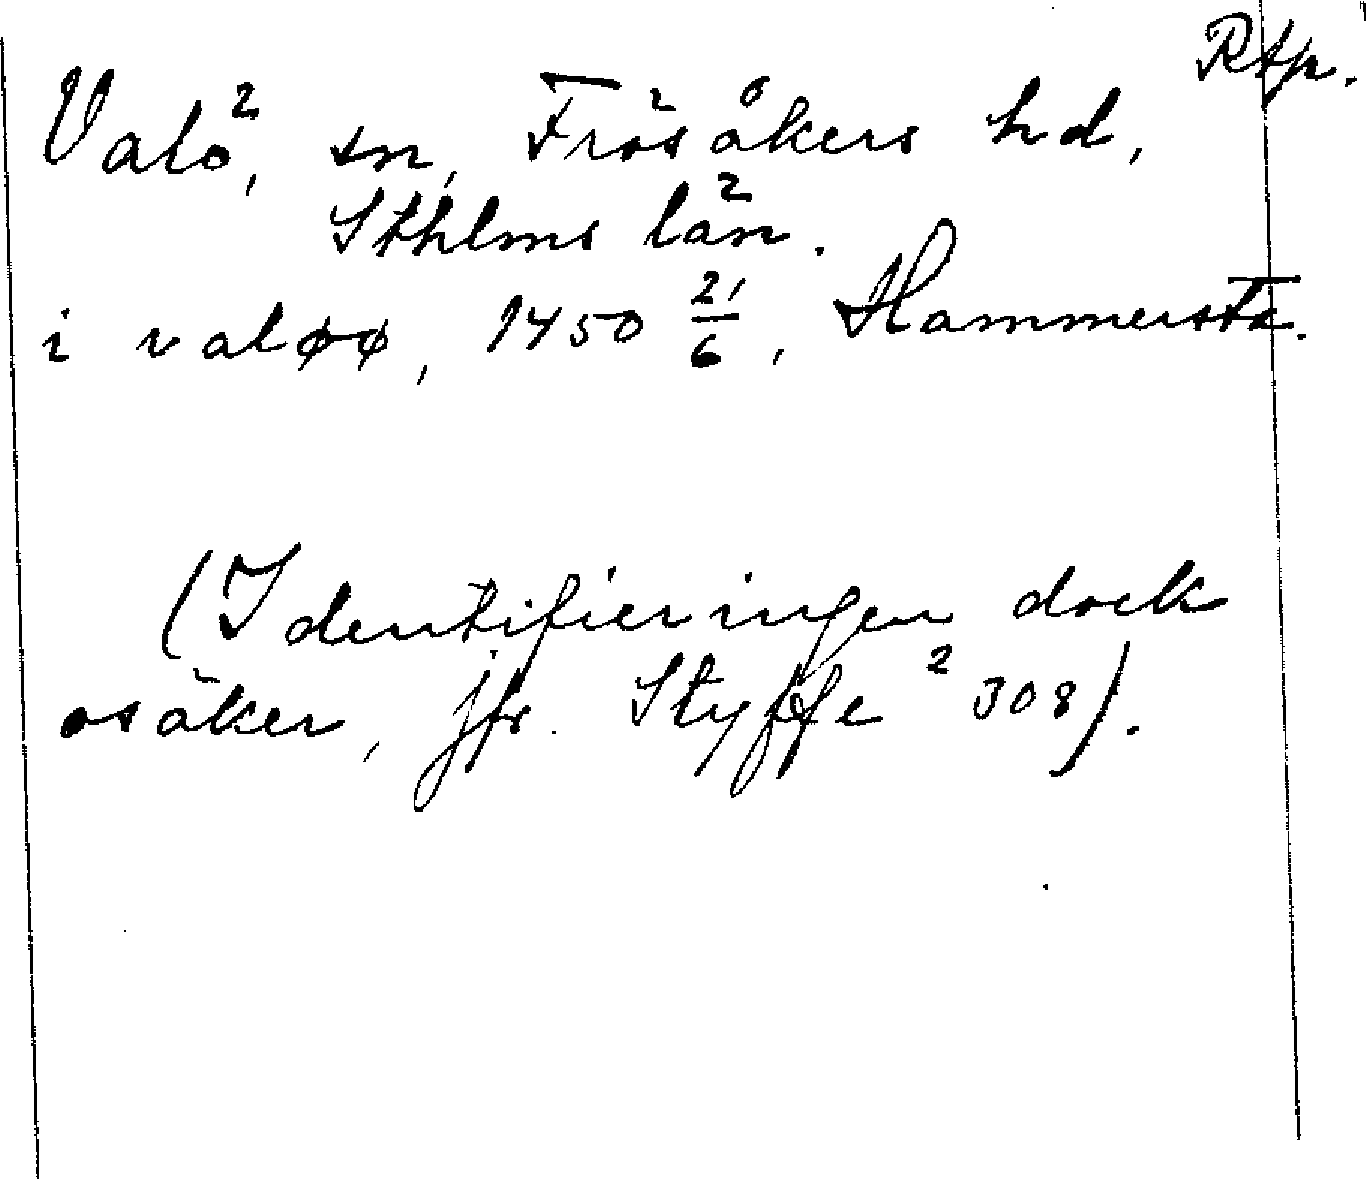 Rtp.
Valö, sn, Frösåkers hd,
Sthlms län.
i valøø, 1450 21/6, Hammersta.
(Identifieringen dock
osäker, jfr. Styffe² 308).